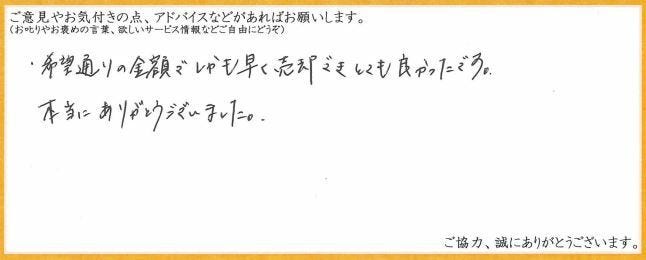 ご意見やお気付きの点、アドバイスなどがあればお願いします。
(お叱りやお褒めの言葉、欲しいサービス情報などご自由にどうぞ)
・希望通りの金額でしかも早く売却できとても良かったです。
本当にありがとうございました。
ご協力、誠にありがとうございます。